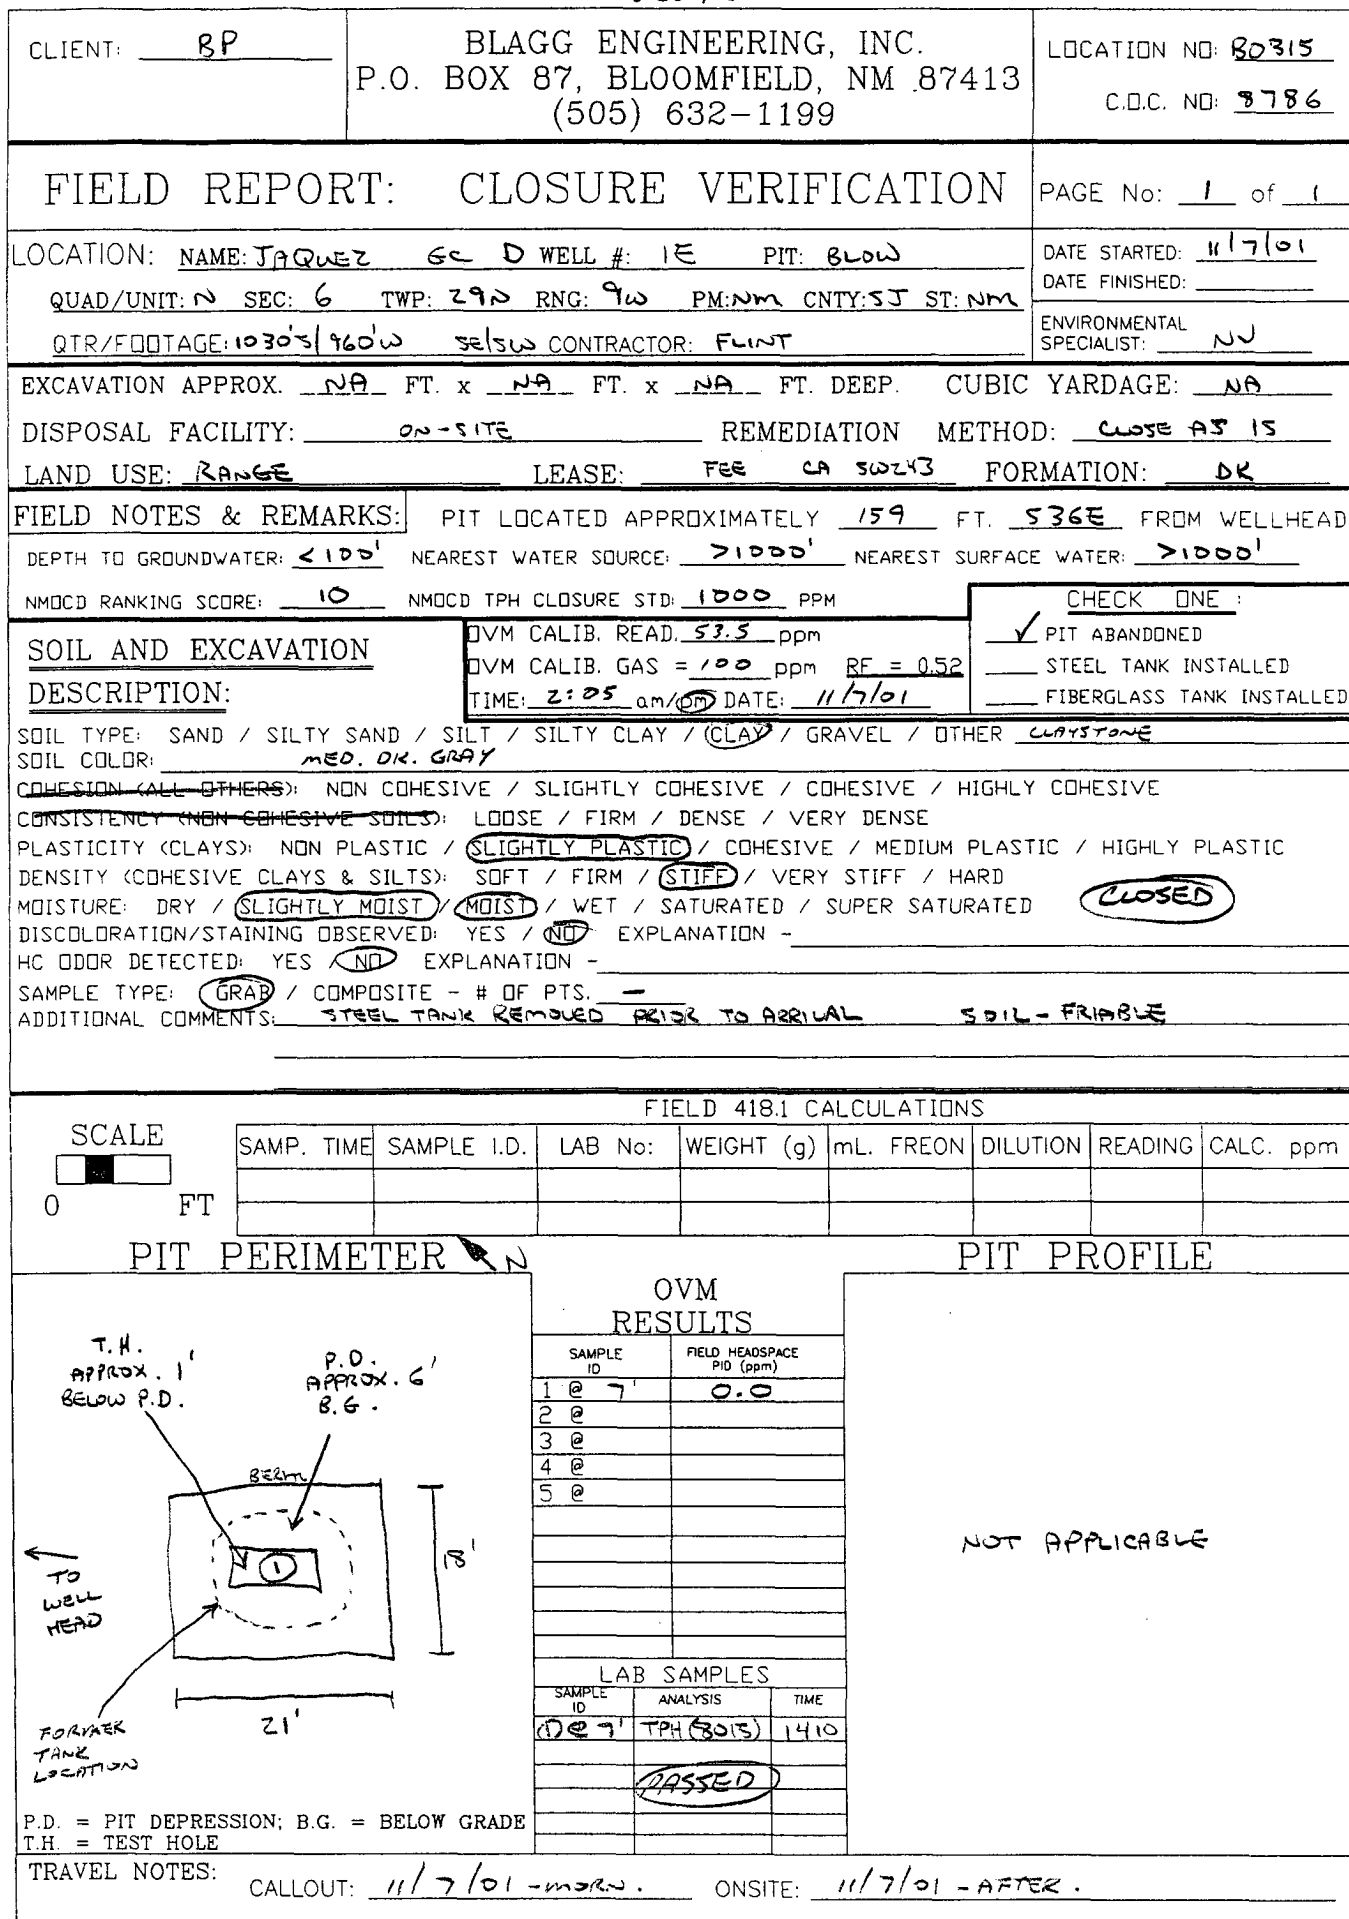 CLIENT: BP
BLAGG ENGINEERING, INC.
P.O. BOX 87, BLOOMFIELD, NM 87413
(505) 632-1199
LOCATION NO: B0315
C.O.C. NO: 8786
FIELD REPORT: CLOSURE VERIFICATION
PAGE No: 1 of 1
LOCATION: NAME: JAQUEZ GC D WELL #: 1E PIT: BLOW
QUAD/UNIT: N SEC: 6 TWP: 29N RNG: 9W PM: NM CNTY: SJ ST: NM
QTR/FOOTAGE: 1030'S/960'W SE/SW CONTRACTOR: FLINT
DATE STARTED: 11/7/01
DATE FINISHED:
ENVIRONMENTAL
SPECIALIST: NV
EXCAVATION APPROX. NA FT. x NA FT. x NA FT. DEEP. CUBIC YARDAGE: NA
DISPOSAL FACILITY: ON-SITE REMEDIATION METHOD: CLOSE AS IS
LAND USE: RANGE LEASE: FEE CA SW243 FORMATION: DK
FIELD NOTES & REMARKS: PIT LOCATED APPROXIMATELY 159 FT. S36E FROM WELLHEAD
DEPTH TO GROUNDWATER: <100' NEAREST WATER SOURCE: >1000' NEAREST SURFACE WATER: >1000'
NMOCD RANKING SCORE: 10 NMOCD TPH CLOSURE STD: 1000 PPM
CHECK ONE :
✓ PIT ABANDONED
STEEL TANK INSTALLED
FIBERGLASS TANK INSTALLED
SOIL AND EXCAVATION
DESCRIPTION:
OVM CALIB. READ. 53.5 ppm
OVM CALIB. GAS = 100 ppm RF = 0.52
TIME: 2:05 am/pm DATE: 11/7/01
SOIL TYPE: SAND / SILTY SAND / SILT / SILTY CLAY / CLAY / GRAVEL / OTHER CLAYSTONE
SOIL COLOR: MED. DK. GRAY
COHESION (ALL OTHERS): NON COHESIVE / SLIGHTLY COHESIVE / COHESIVE / HIGHLY COHESIVE
CONSISTENCY (NON COHESIVE SOILS): LOOSE / FIRM / DENSE / VERY DENSE
PLASTICITY (CLAYS): NON PLASTIC / SLIGHTLY PLASTIC / COHESIVE / MEDIUM PLASTIC / HIGHLY PLASTIC
DENSITY (COHESIVE CLAYS & SILTS): SOFT / FIRM / STIFF / VERY STIFF / HARD
MOISTURE: DRY / SLIGHTLY MOIST / MOIST / WET / SATURATED / SUPER SATURATED CLOSED
DISCOLORATION/STAINING OBSERVED: YES / NO EXPLANATION -
HC ODOR DETECTED: YES / NO EXPLANATION -
SAMPLE TYPE: GRAB / COMPOSITE - # OF PTS. —
ADDITIONAL COMMENTS: STEEL TANK REMOVED PRIOR TO ARRIVAL SOIL - FRIABLE
FIELD 418.1 CALCULATIONS
SCALE
0 FT
SAMP. TIME SAMPLE I.D. LAB No: WEIGHT (g) mL. FREON DILUTION READING CALC. ppm
PIT PERIMETER N
PIT PROFILE
T.H.
APPROX. 1'
BELOW P.D.
P.D.
APPROX. 6'
B.G.
BERM
1
18'
TO
WELL
HEAD
21'
FORMER
TANK
LOCATION
P.D. = PIT DEPRESSION; B.G. = BELOW GRADE
T.H. = TEST HOLE
OVM
RESULTS
SAMPLE ID FIELD HEADSPACE PID (ppm)
1 @ 7' 0.0
2 @
3 @
4 @
5 @
LAB SAMPLES
SAMPLE ID ANALYSIS TIME
① @ 7' TPH (8015) 1410
PASSED
NOT APPLICABLE
TRAVEL NOTES: CALLOUT: 11/7/01 - MORN. ONSITE: 11/7/01 - AFTER.